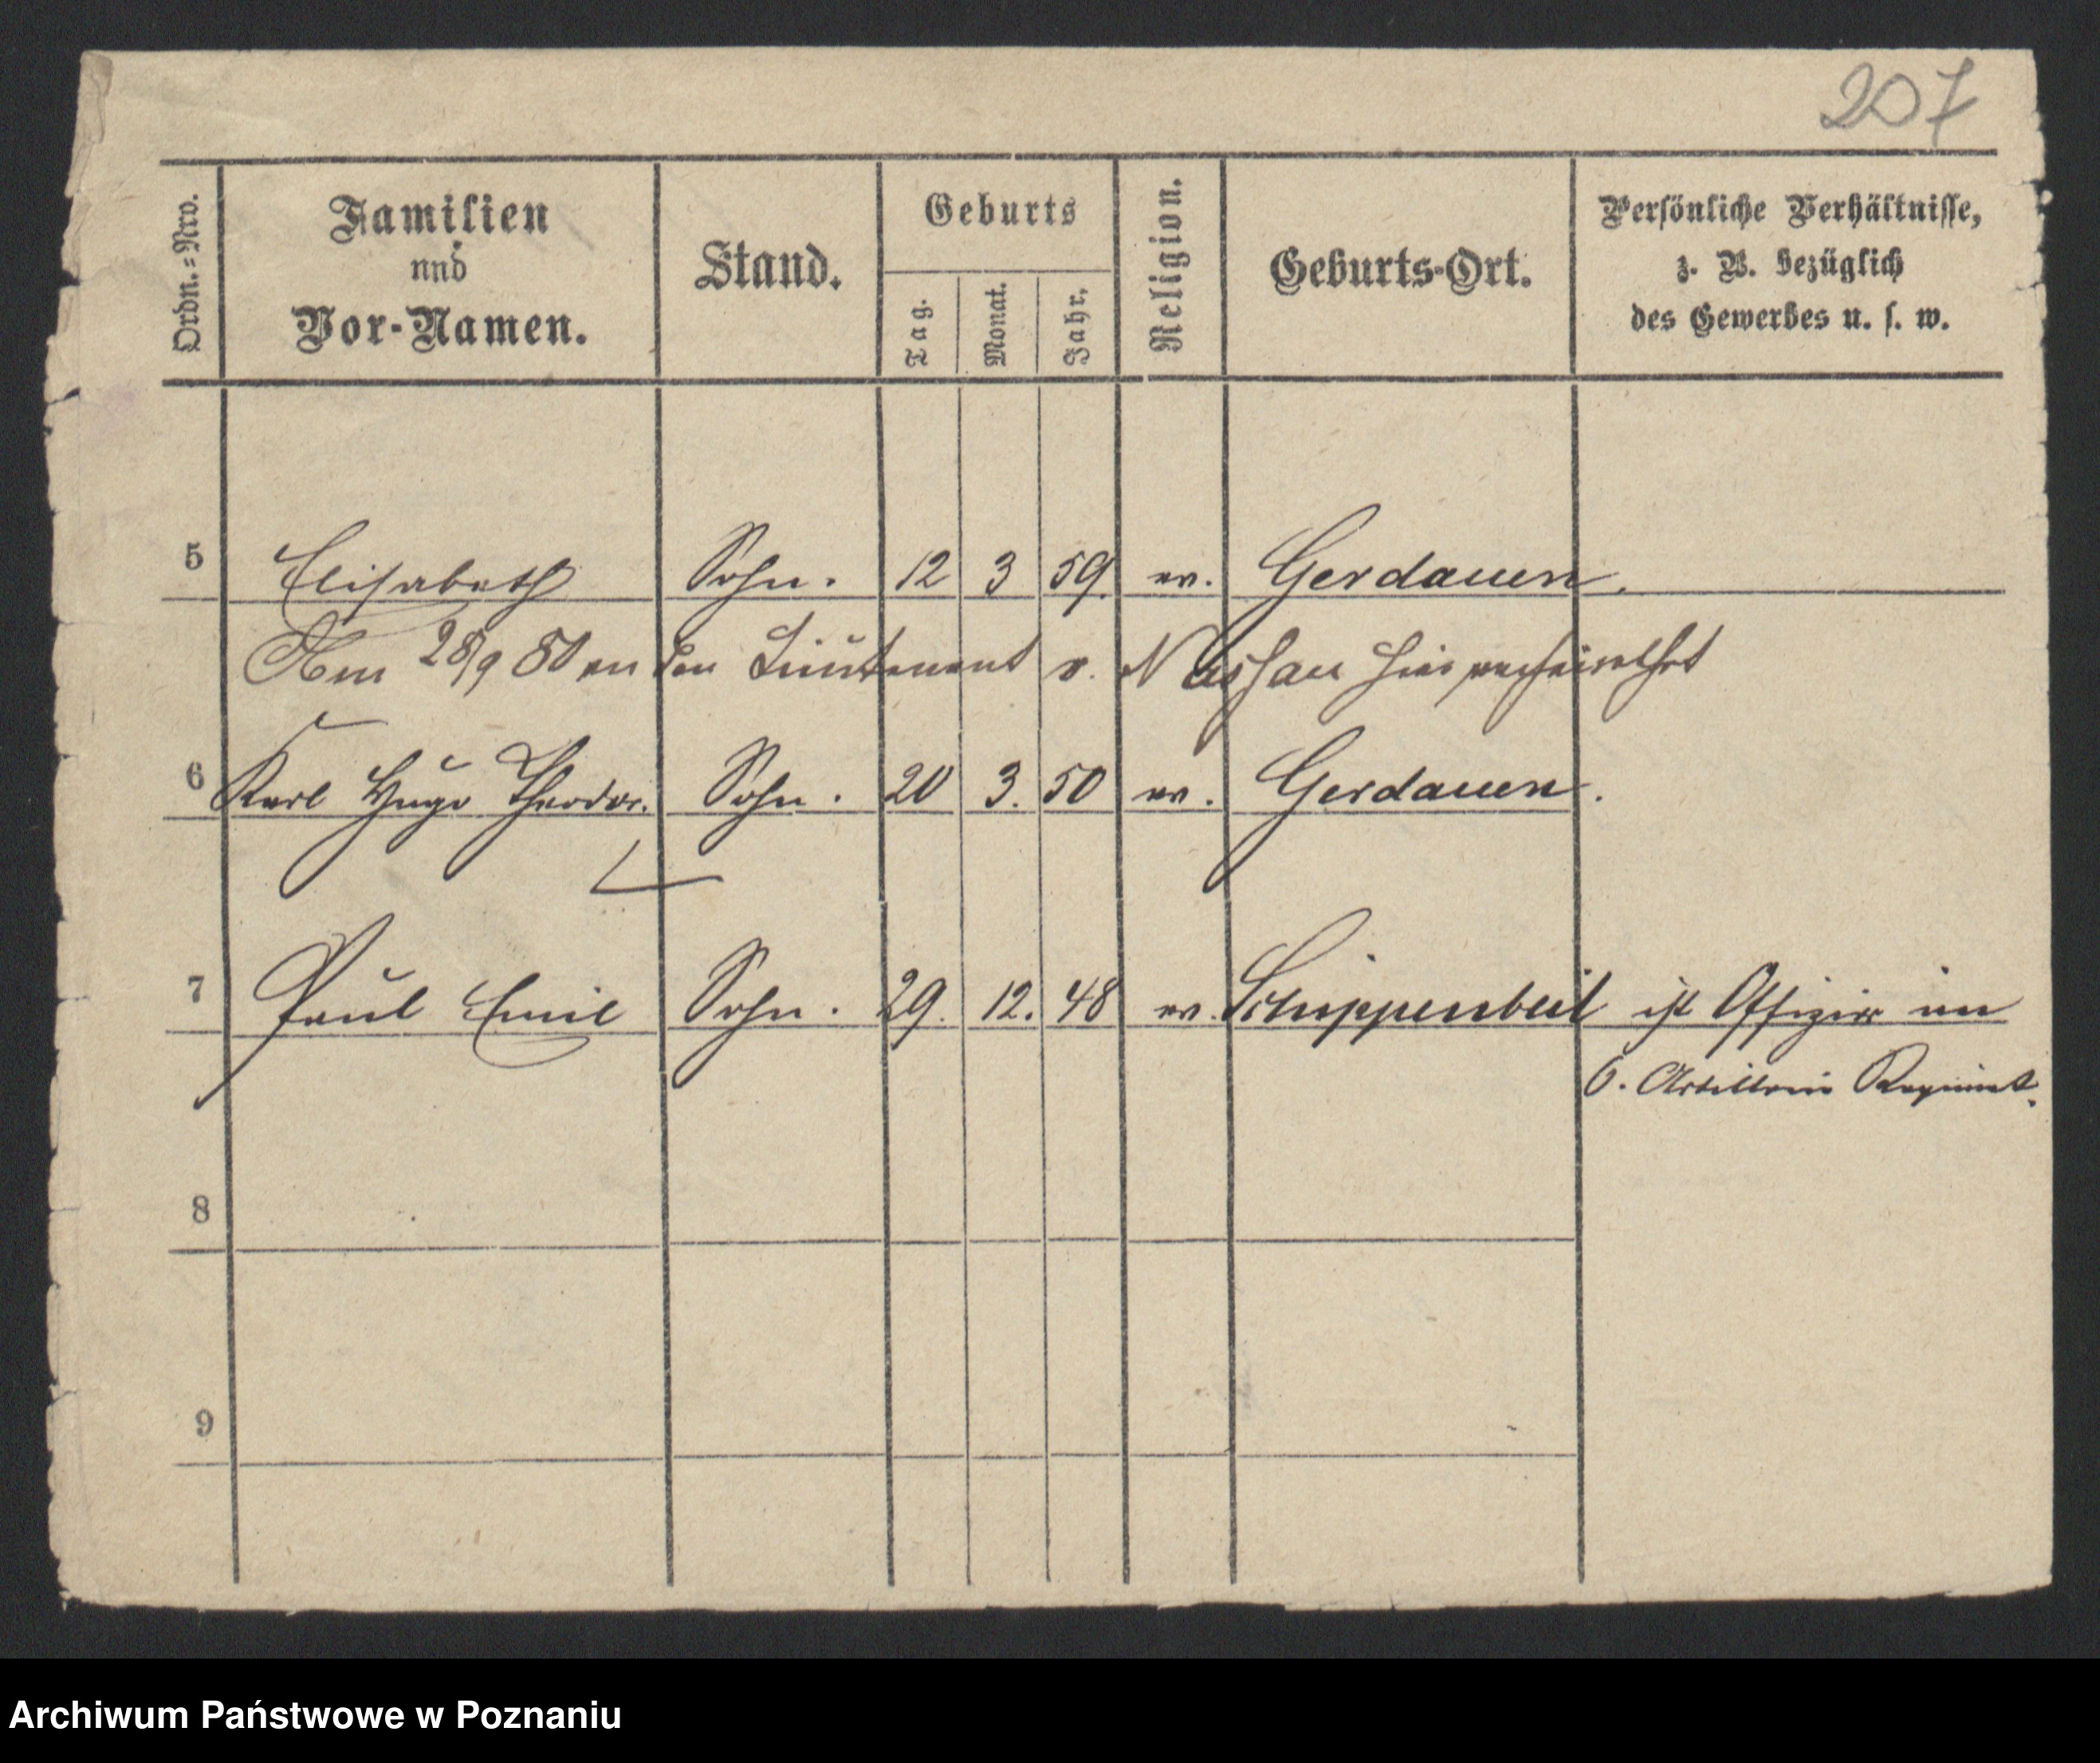 207
Ordn.=Nro.
Familien
und
Vor-Namen.
Stand.
Geburts
Tag.
Monat.
Jahr.
Religion.
Geburts-Ort.
Persönliche Verhältnisse,
z. B. bezüglich
des Gewerbes u. s. w.
5 Elisabeth Sohn. 12 3 59. ev. Gerdauen.
Am 28/9 80 an den Lieutenant v. Nassau hier verheirathet
6 Karl Hugo Theodor. Sohn. 20 3. 50 ev. Gerdauen.
7 Paul Emil Sohn. 29. 12. 48 ev. Schippenbeil ist Offizier im
6. Artillerie Regiment.
8
9
Archiwum Państwowe w Poznaniu